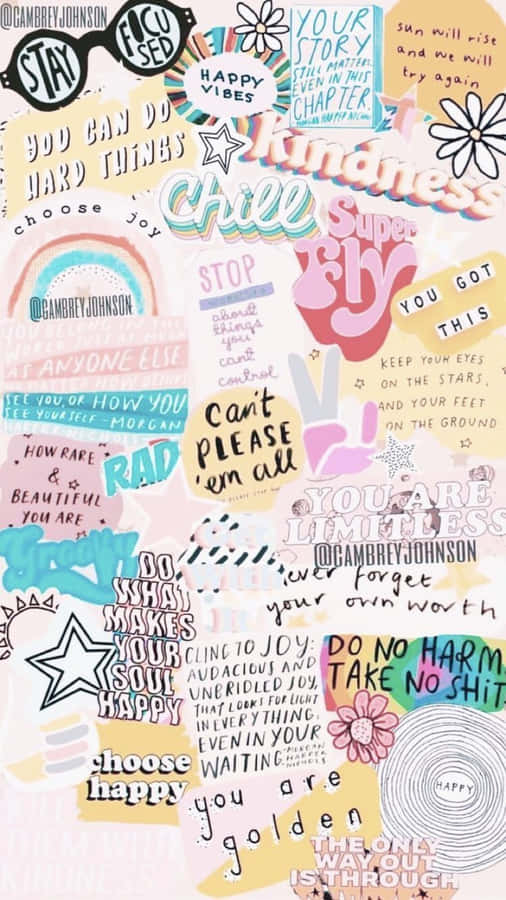 @CAMBREYJOHNSON
STAY
FOCU
SED
HAPPY
VIBES
YOUR
STORY
STILL MATTERS,
EVEN IN THIS
CHAPTER.
sun will rise
and we will
try again
YOU CAN DO
HARD THINGS
kindness
Chill
choose joy
@CAMBREYJOHNSON
Super
Fly
STOP
about
things
you
can't
control
YOU GOT
THIS
AS ANYONE ELSE
SEE YOU OR HOW YOU
SEE YOURSELF - MORGAN
KEEP YOUR EYES
ON THE STARS,
AND YOUR FEET
ON THE GROUND
can't
PLEASE
'em all
HOW RARE
&
BEAUTIFUL
YOU ARE
RAD
YOU ARE
LIMITLESS
@CAMBREYJOHNSON
Groovy
ever forget
your own worth
DO
WHAT
MAKES
YOUR
SOUL
HAPPY
CLING TO JOY:
AUDACIOUS AND
UNBRIDLED JOY,
THAT LOOKS FOR LIGHT
IN EVERYTHING,
EVEN IN YOUR
WAITING. - MORGAN
HARPER
NICHOLS
DO NO HARM
TAKE NO SHIT
choose
happy
HAPPY
you are
golden
KINDNESS
THE ONLY
WAY OUT
IS THROUGH